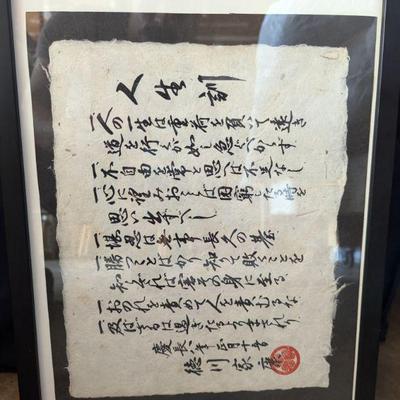 人生訓
一人の一生は重荷を負いて遠き
道を行くが如し急ぐべからず
一不自由を常と思へば不足なし
一心に望みおこらば困窮したる時を
思い出すべし
一堪忍は無事長久の基
一勝つことばかり知って敗くることを
知らざれば害その身に至る
一おのれを責めて人を責むるな
一及ばざるは過ぎたるよりまされり
慶長八年正月十五日
徳川家康